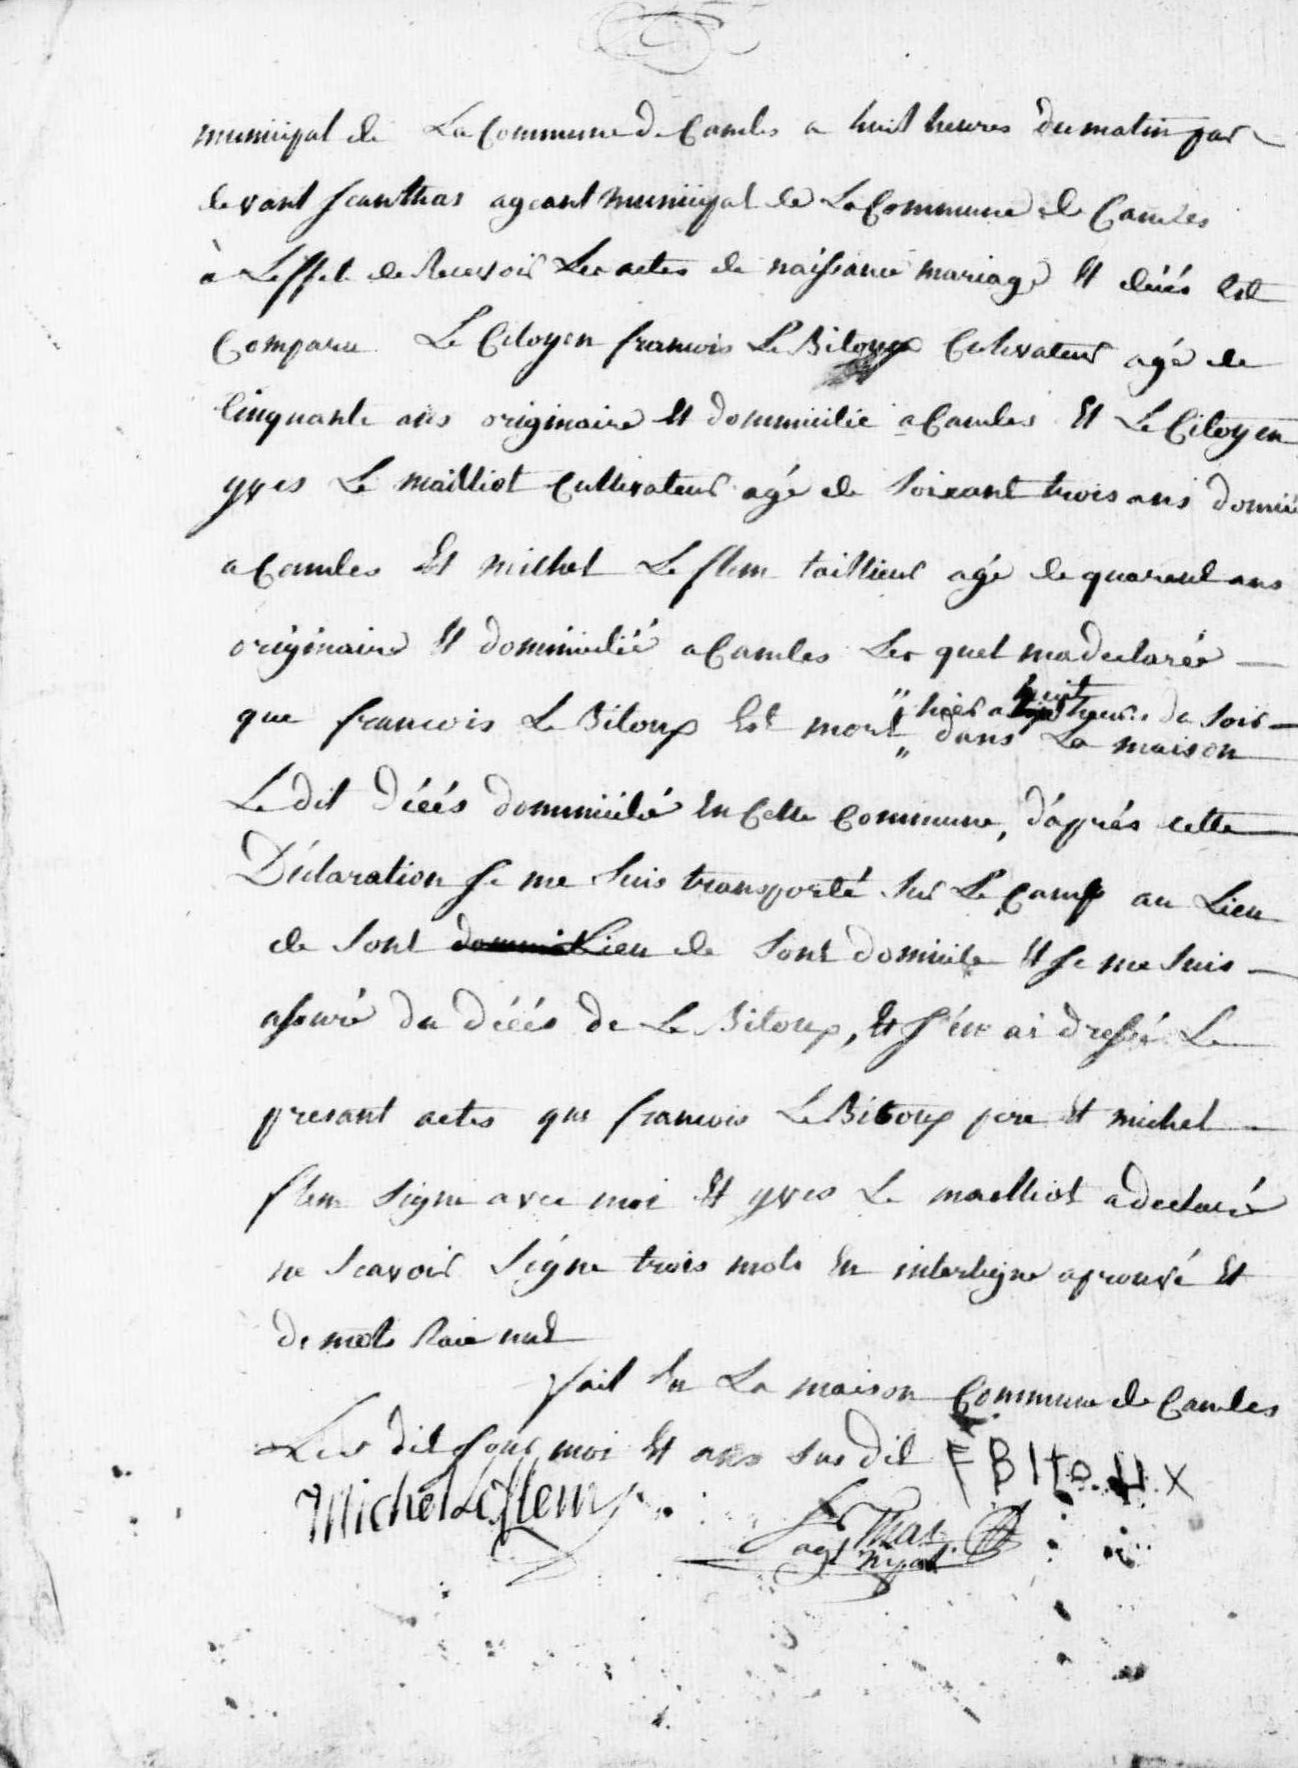 municipal de La Commune de Camles a huit heures du matin par
devant Jean thas ageant municipal de La Commune de Camles
à Leffet de Recevoir Les actes de naissance mariage Et décés Est
Comparu Le Citoyen francois Le Bitoux Cultivateur agé de
Cinquante ans originaire Et dommicilié a Camles Et Le Citoyen
yves Le mailliot Cultivateur agé de soixant trois ans domicié
a Camles Et michel Le flem taillieur agé de quarant ans
originaire Et dommicilié a Camles Les quel ma declarée
que francois Le Bitoux Est mort dans La maison
hier a huit heures du soir
Le dit décés dommicilié En Cette Commune, d'aprés cette
Déclaration Je me suis transporté sur Le Camp au Lieu
de sont Lieu de sont domicile Et Je me suis
assuré du décés de Le Bitoux, Et J'én ai dressé Le
presant actes que francois Le Bitoux pere Et michel
flem signe avec moi Et yves Le mailliot a declaré
ne scavoir Signe trois mots En interligne aprouvé Et
de mots Raie nul
fait En La maison Commune de Camles
Les dit Jour moi Et ans sus dit F BItouX
Michel Le flem J Thas
agt mpal